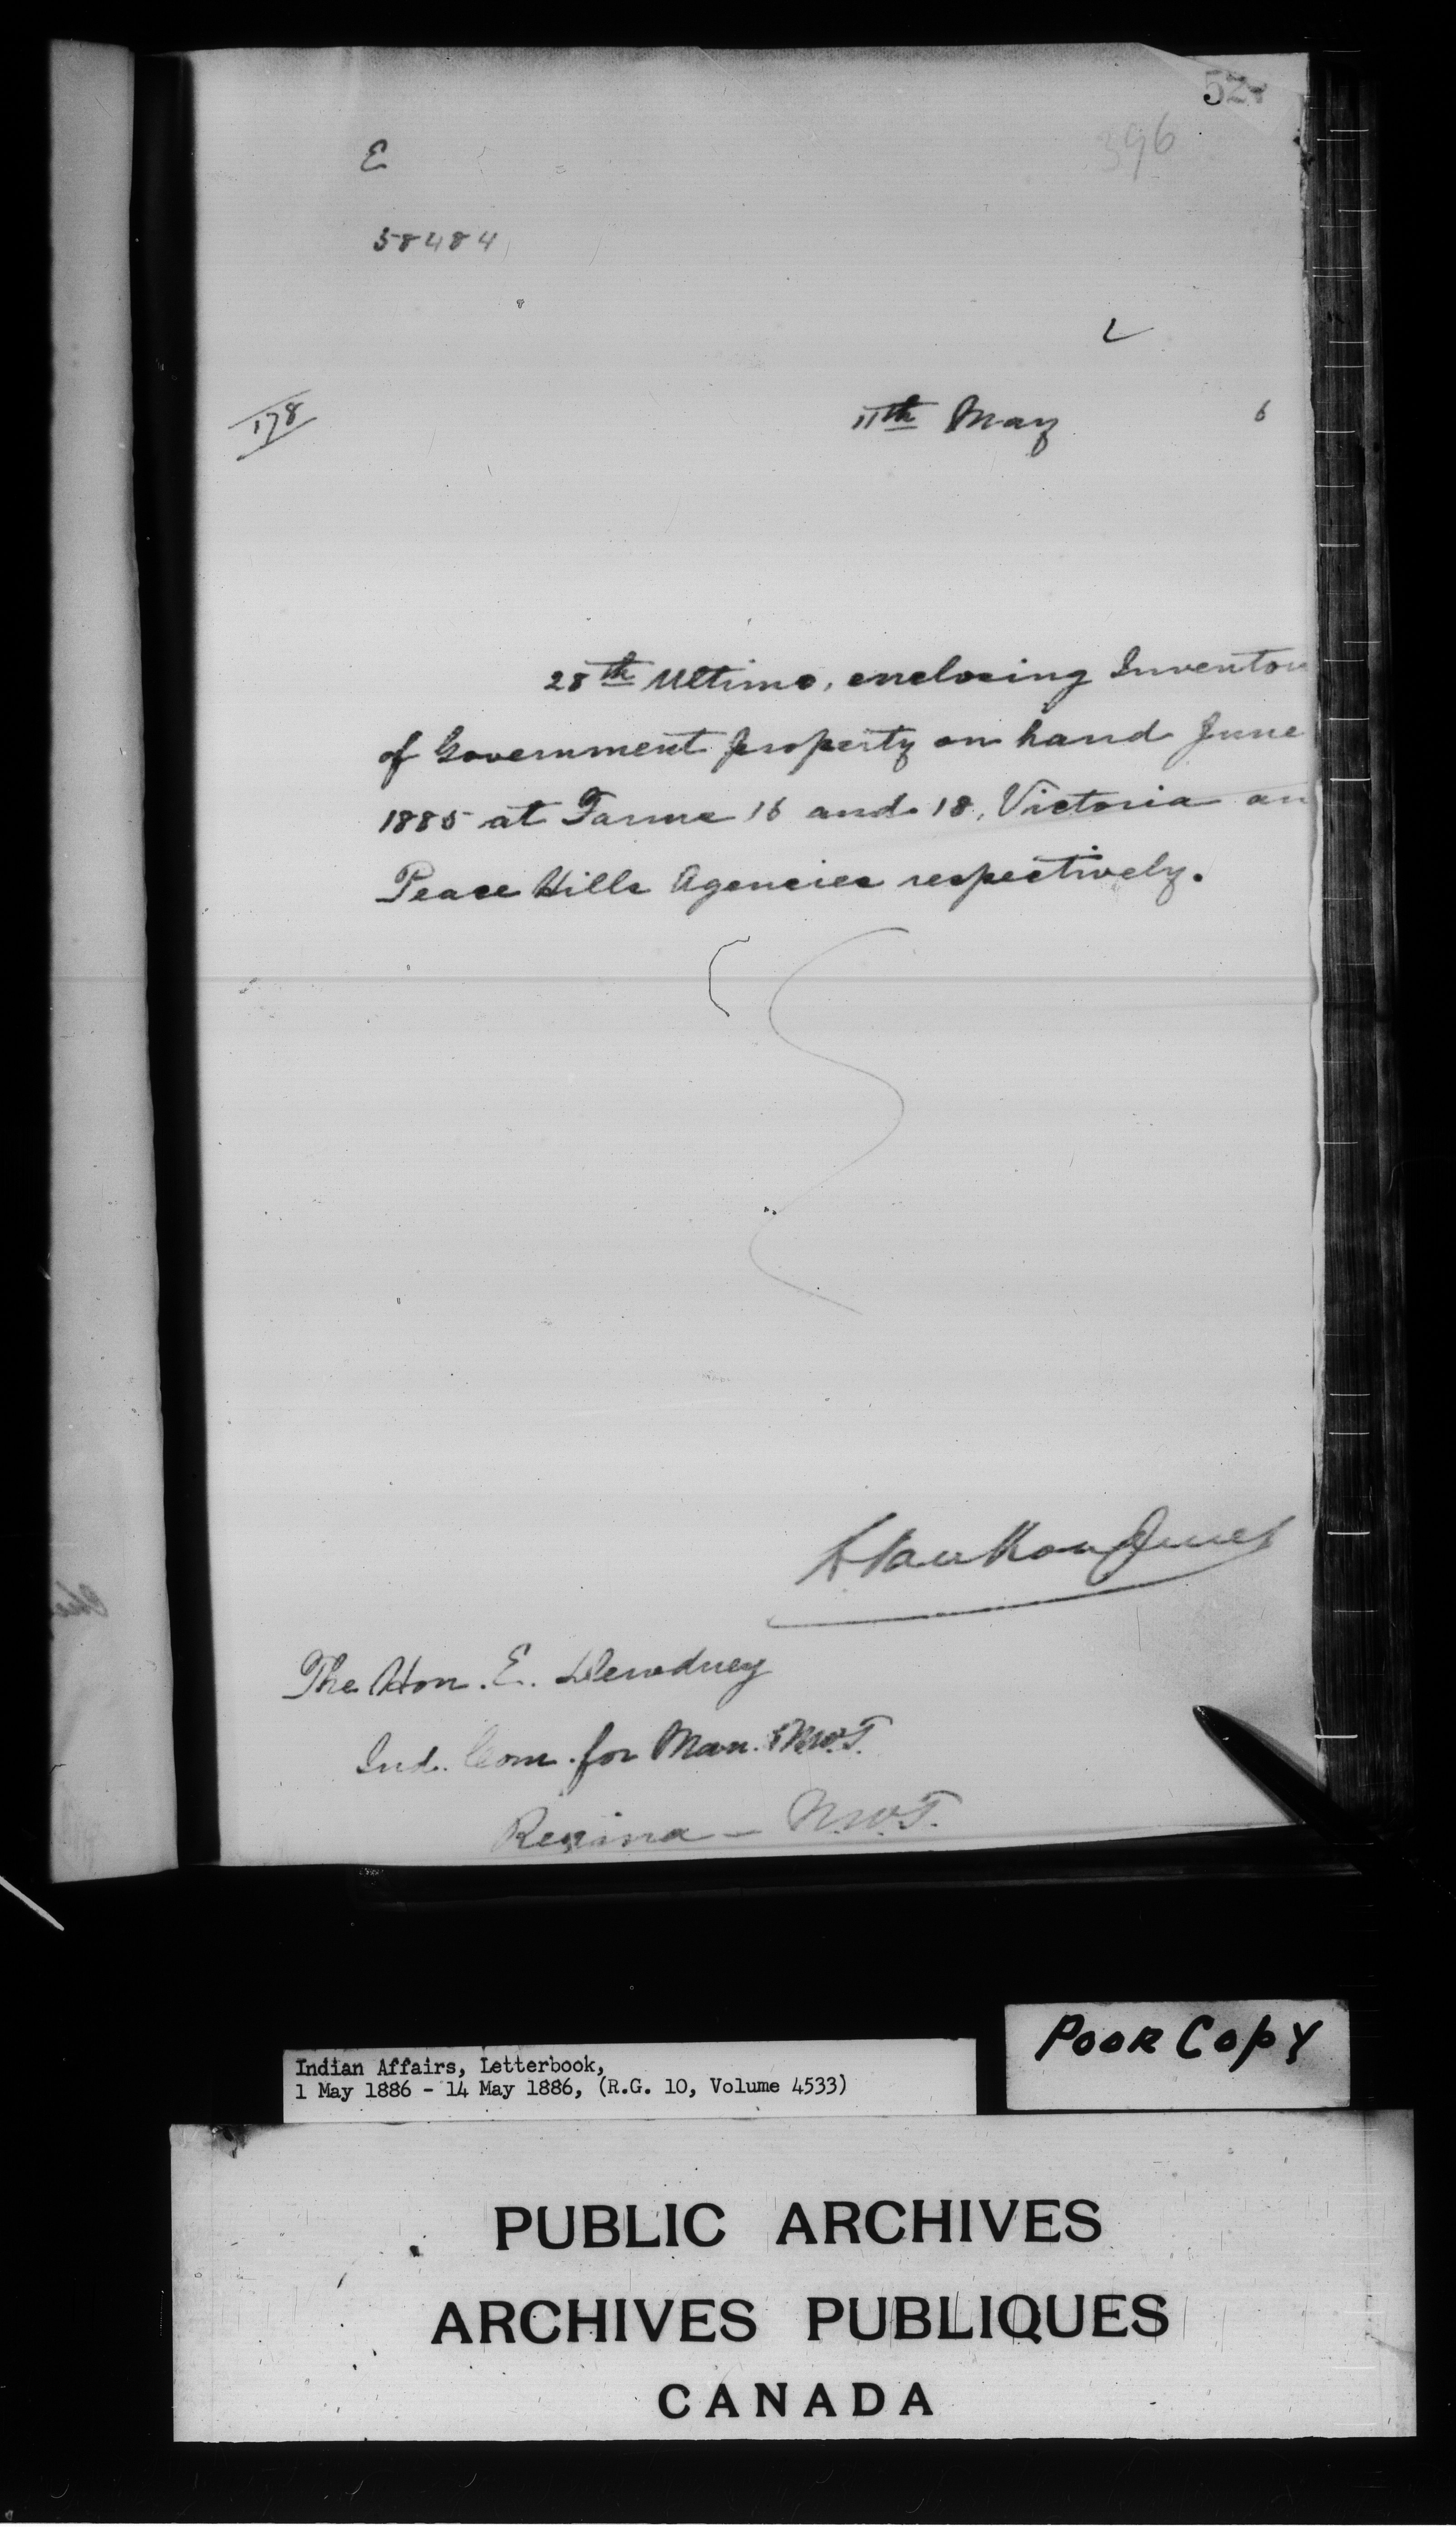 52
396
E
58484
L
178
11th May 6
28th Ultimo, enclosing Inventor
of Government property on hand June
1885 at Farms 16 and 18, Victoria an
Peace Hills Agencies respectively.
L. Vankoughnet
The Hon. E. Dewdney
Ind. Com. for Man. & N.W.T.
Regina - N.W.T.
POOR COPY
Indian Affairs, Letterbook,
1 May 1886 - 14 May 1886, (R.G. 10, Volume 4533)
PUBLIC ARCHIVES
ARCHIVES PUBLIQUES
CANADA